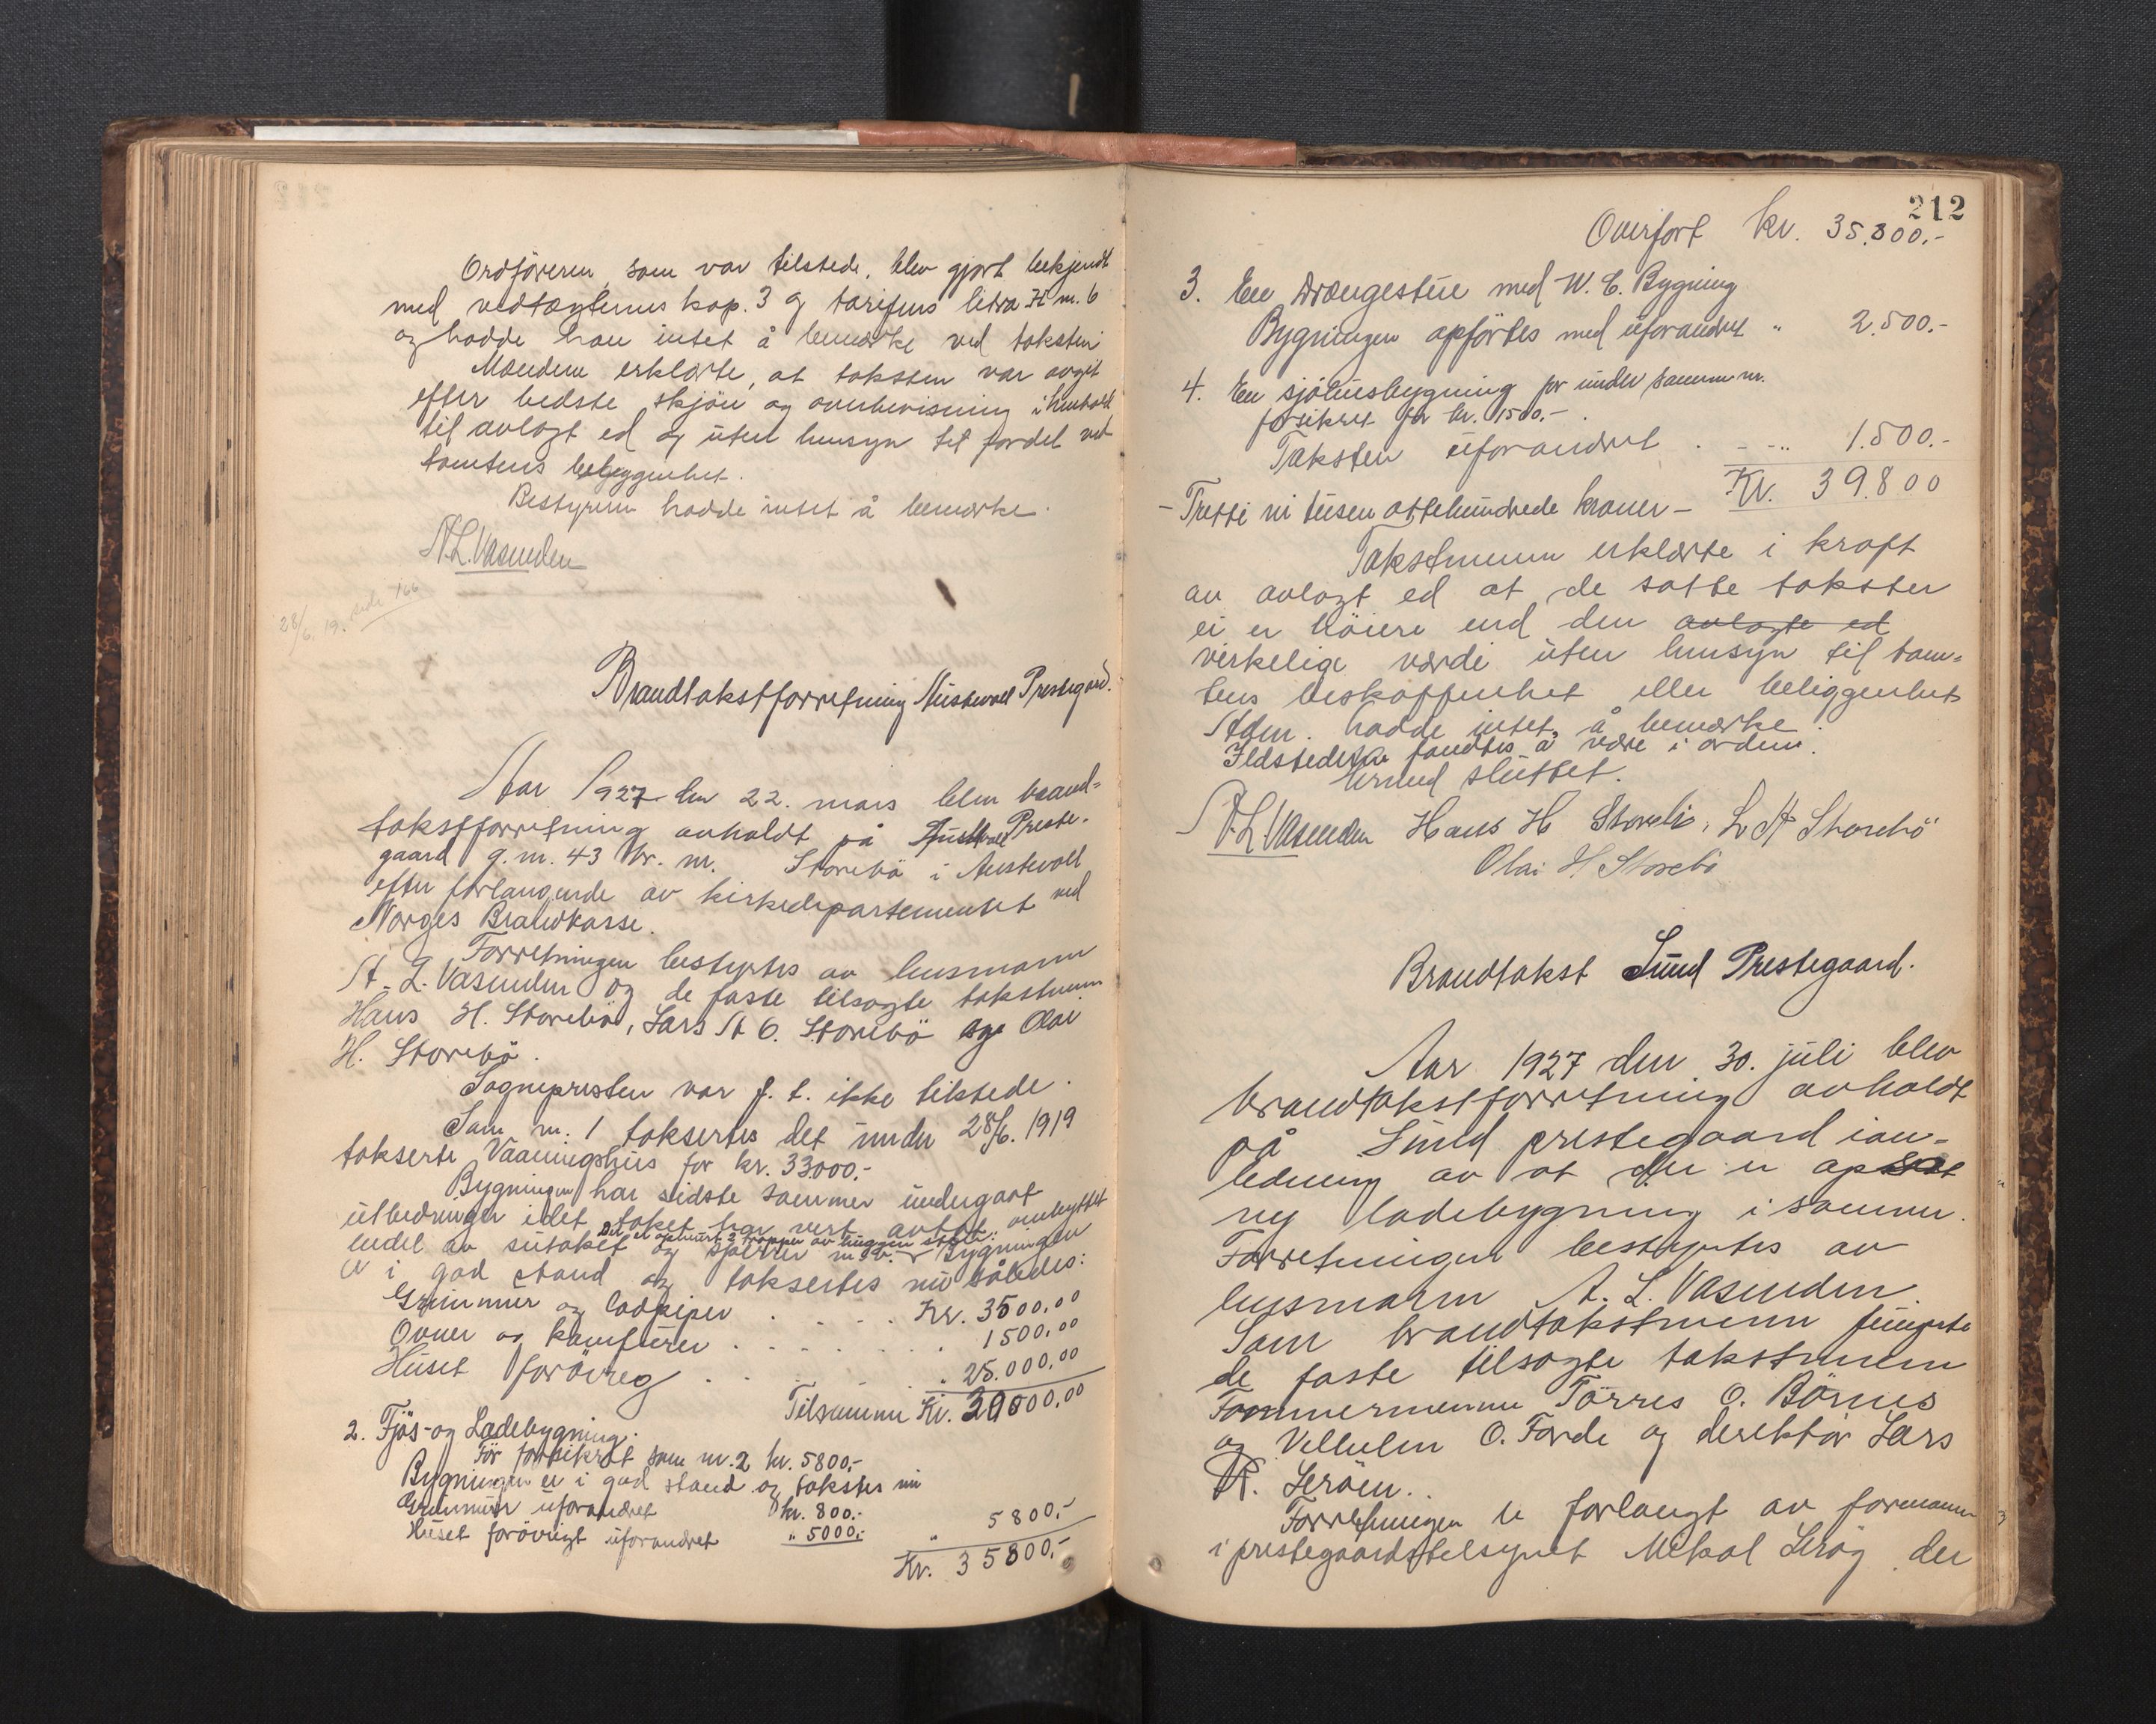 Ordföreren, som var tilstede, blev gjort bekjendt
med vedtægternes kap. 3 og tarifens litra H nr. 6
og hadde han intet å bemærke ved taksten
Mændene erklærte, at taksten var avgit
efter bedste skjön og overbevisning i henhold
til avlagt ed og uten hensyn til fordel ved
tomtens bebyggenhet.
Bestyreren hadde intet å bemærke.
A.L. Vasenden
28/6. 19. side 166
Brandtakstforretning Austevoll Prestegaard.
Aar 1927 den 22. mars blev brand-
takstforretning avholdt på Austevoll Preste-
gaard g.nr. 43 br. nr. Storebö i Austevoll
efter forlangende av kirkedepartementet ved
Norges Brandkasse.
Forretningen bestyrtes av lensmann
A. L. Vasenden og de faste tilsagte takstmenn
Hans H. Storebö, Lars A O. Storebö og Olai
H. Storebö.
Sognepresten var f. t. ikke tilstede.
Som nr. 1 taksertes det under 28/6. 1919
takserte Vaaningshus for kr. 33000.-
Bygningen har sidste sommer undergaat
utbedringer idet taket har vert avtat, ombyttet
Det er opmurt 2 trapper av huggen sten.
endel av sutaket og sperrer m.v. - Bygningen
er i god stand og taksertes nu således:
Grunnmur og lodpiper . . . . Kr. 3500,00
Ovner og komfurer . . . . . . 1500,00
Huset forövreg . . . . . " 25.000,00
Tilsammen Kr. 30000,00
2. Fjös- og Ladebygning.
För forsikret som nr. 2 kr. 5800,-
Bygningen er i god stand og takstes nu
Grunnmur uforandret kr. 800.-
Huset forövrigt uforandret " 5000.- " 5800,-
Kr. 35800,-
212
Overfört kr. 35.800.-
3. En Drængestue med W. C. Bygning
Bygningen opförtes med uforandret " 2.500.-
4. En sjöhusbygning för under samme nr.
forsikret for kr. 1500.-
Taksten uforandret . - " 1.500.-
- Tretti ni tusen åttehundrede kroner - Kr. 39.800
Takstmenn erklærte i kraft
av avlagt ed at de satte takster
ei er höiere end den avlagte ed
virkelige værdi uten hensyn til tom-
tens beskaffenhet eller beliggenhet
Adm. hadde intet å bemærke
Ildstederne fandtes å være i orden.
Ermed sluttet.
A.L. Vasenden Hans H Storebö, L A Storebö
Olai H. Storebö
Brandtakst Sund Prestegaard.
Aar 1927 den 30. juli blev
brandtakstforretning avholdt
på Sund prestegaard i an-
ledning av at der er opsat
ny ladebygning i samme.
Forretningen bestyrtes av
lensmann A. L. Vasenden.
Som brandtakstmenn fungerte
de faste tilsagte takstmenn
Tömmermenn Törres O. Börnes
og Vilhelm O. Förde og direktör Lars
R. Leröen.
Forretningen er forlangt av formann
i prestegaardstilsynet Mikal Leröy der